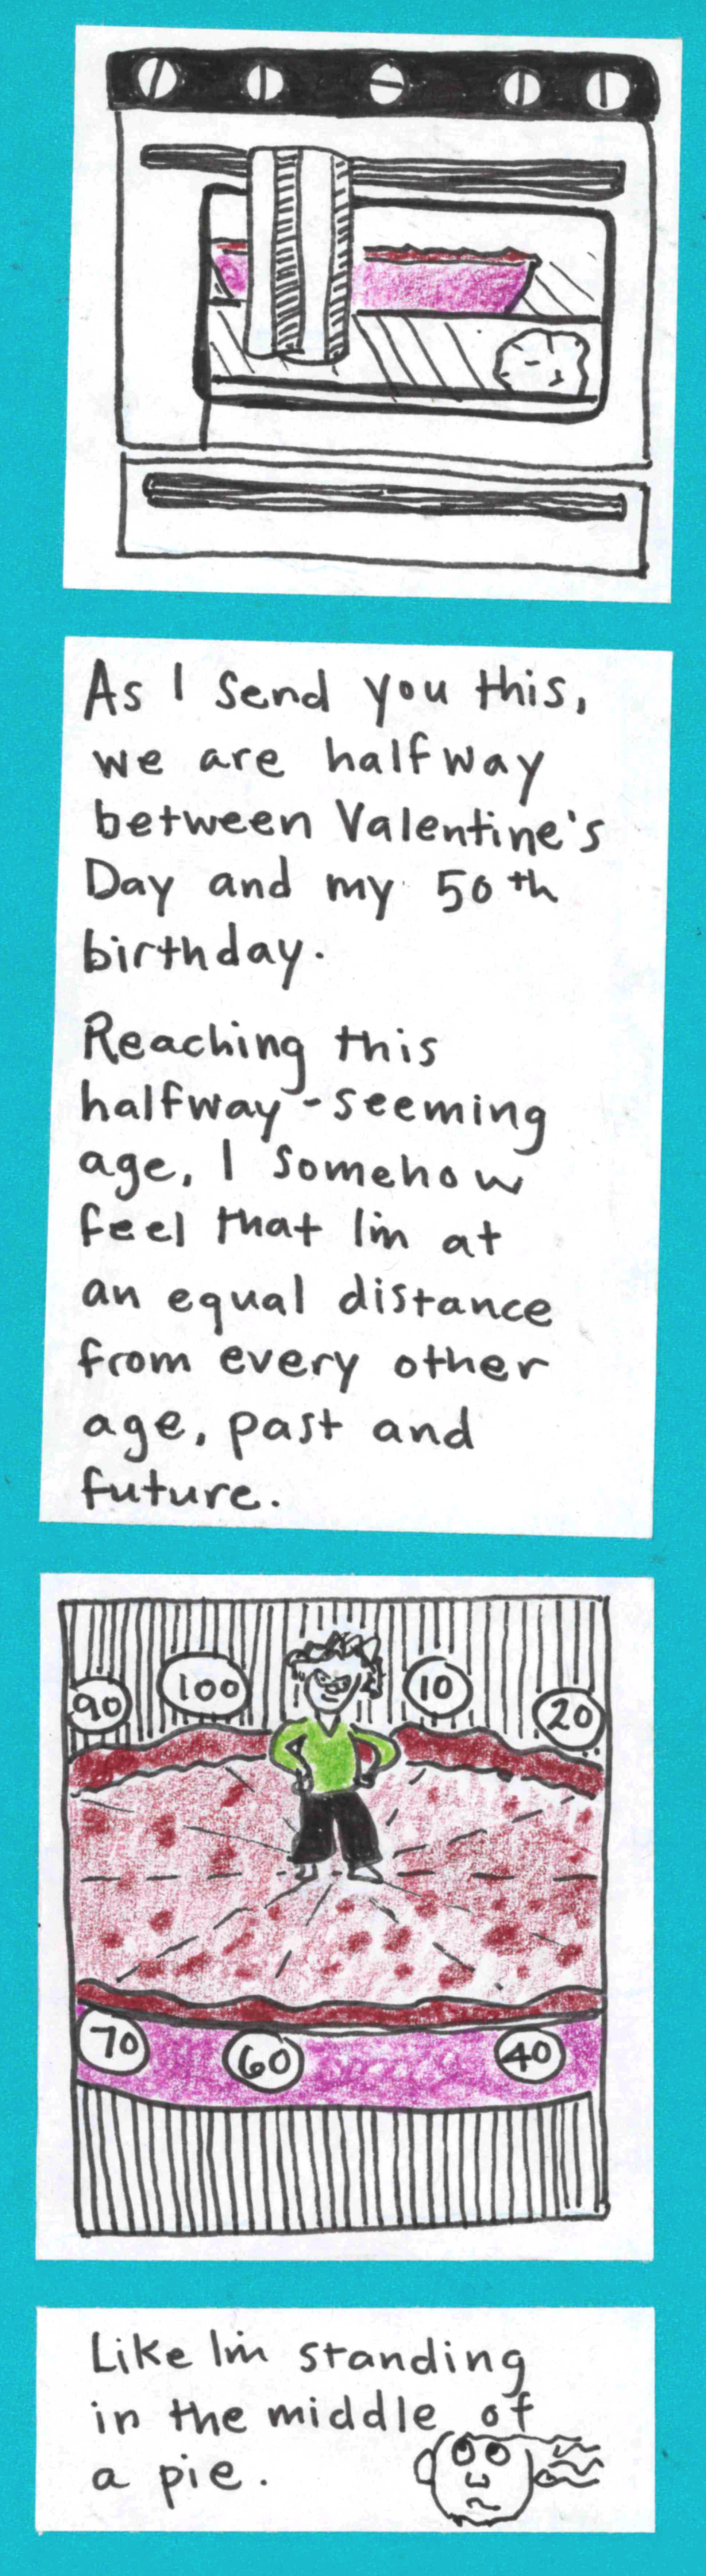 As I send you this,
we are halfway
between Valentine's
Day and my 50th
birthday.
Reaching this
halfway-seeming
age, I somehow
feel that I'm at
an equal distance
from every other
age, past and
future.
90 100 10 20
70 60 40
Like I'm standing
in the middle of
a pie.